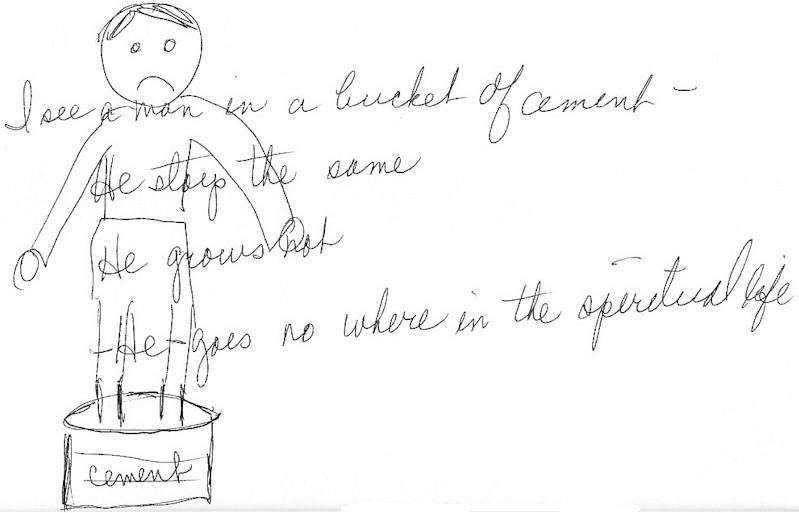 I see a man in a bucket of cement -
He stays the same
He grows not
-He- goes no where in the spiritual life
cement